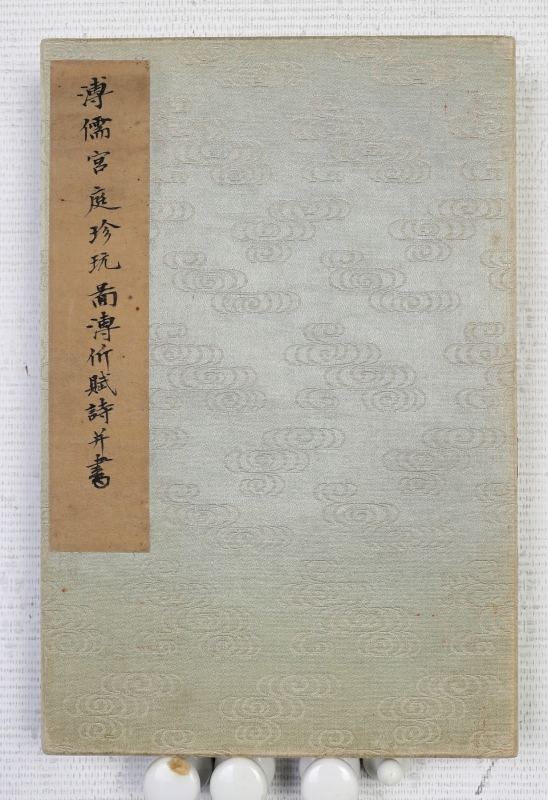 溥儒宮庭珍玩圖溥伒賦詩并書